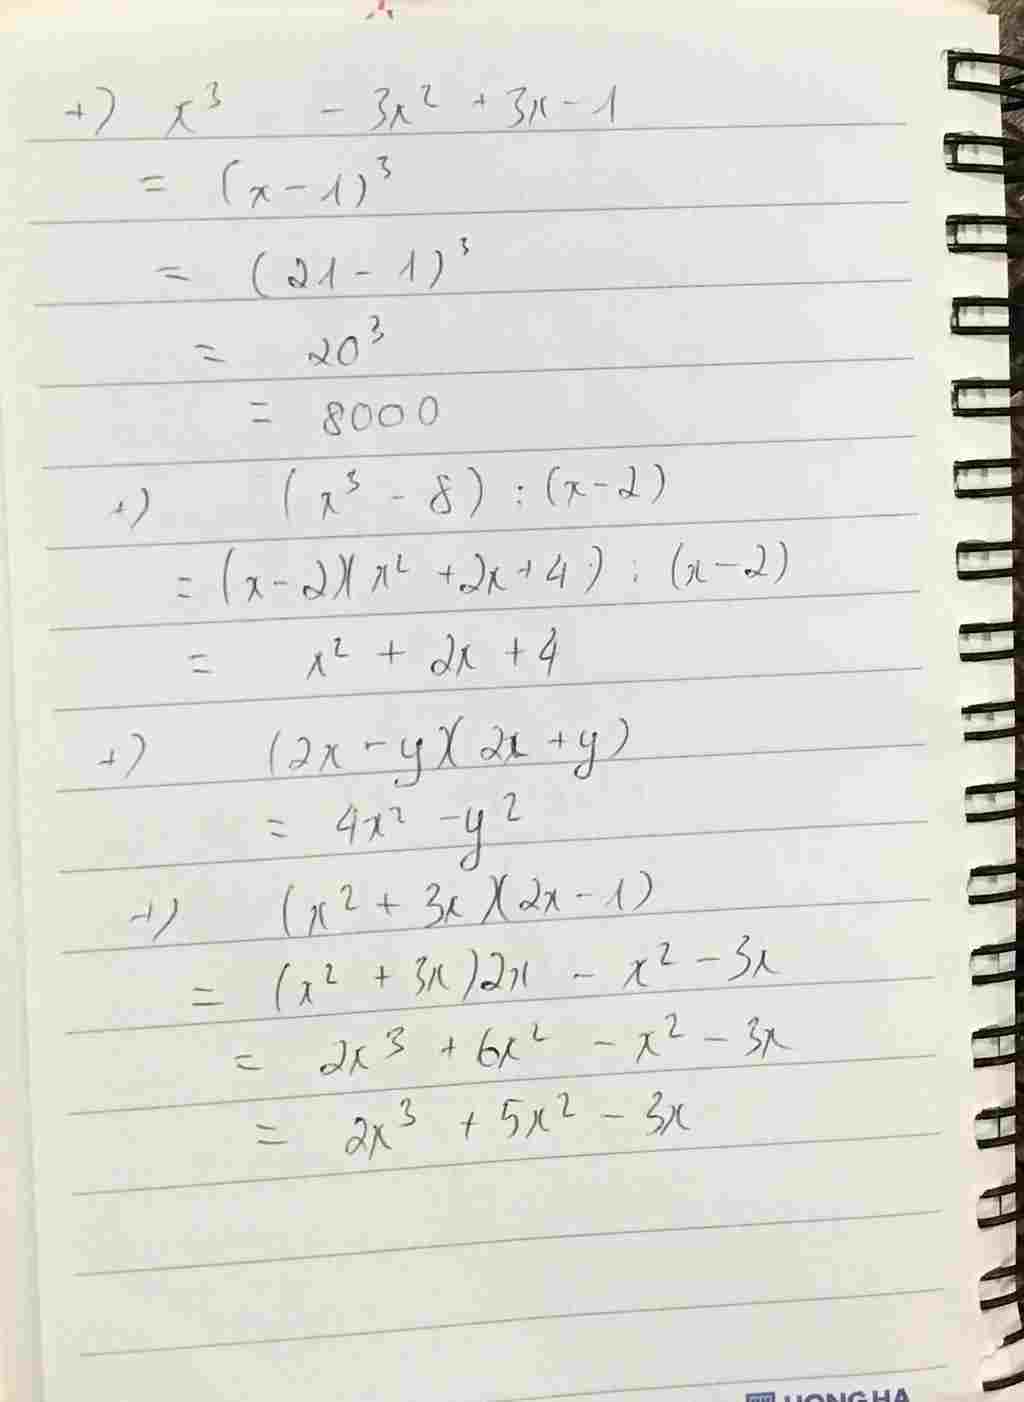 +) x³ - 3x² + 3x - 1
= (x - 1)³
= (21 - 1)³
= 20³
= 8000
+) (x³ - 8) : (x - 2)
= (x - 2)(x² + 2x + 4) : (x - 2)
= x² + 2x + 4
+) (2x - y)(2x + y)
= 4x² - y²
+) (x² + 3x)(2x - 1)
= (x² + 3x)2x - x² - 3x
= 2x³ + 6x² - x² - 3x
= 2x³ + 5x² - 3x
HONG HA